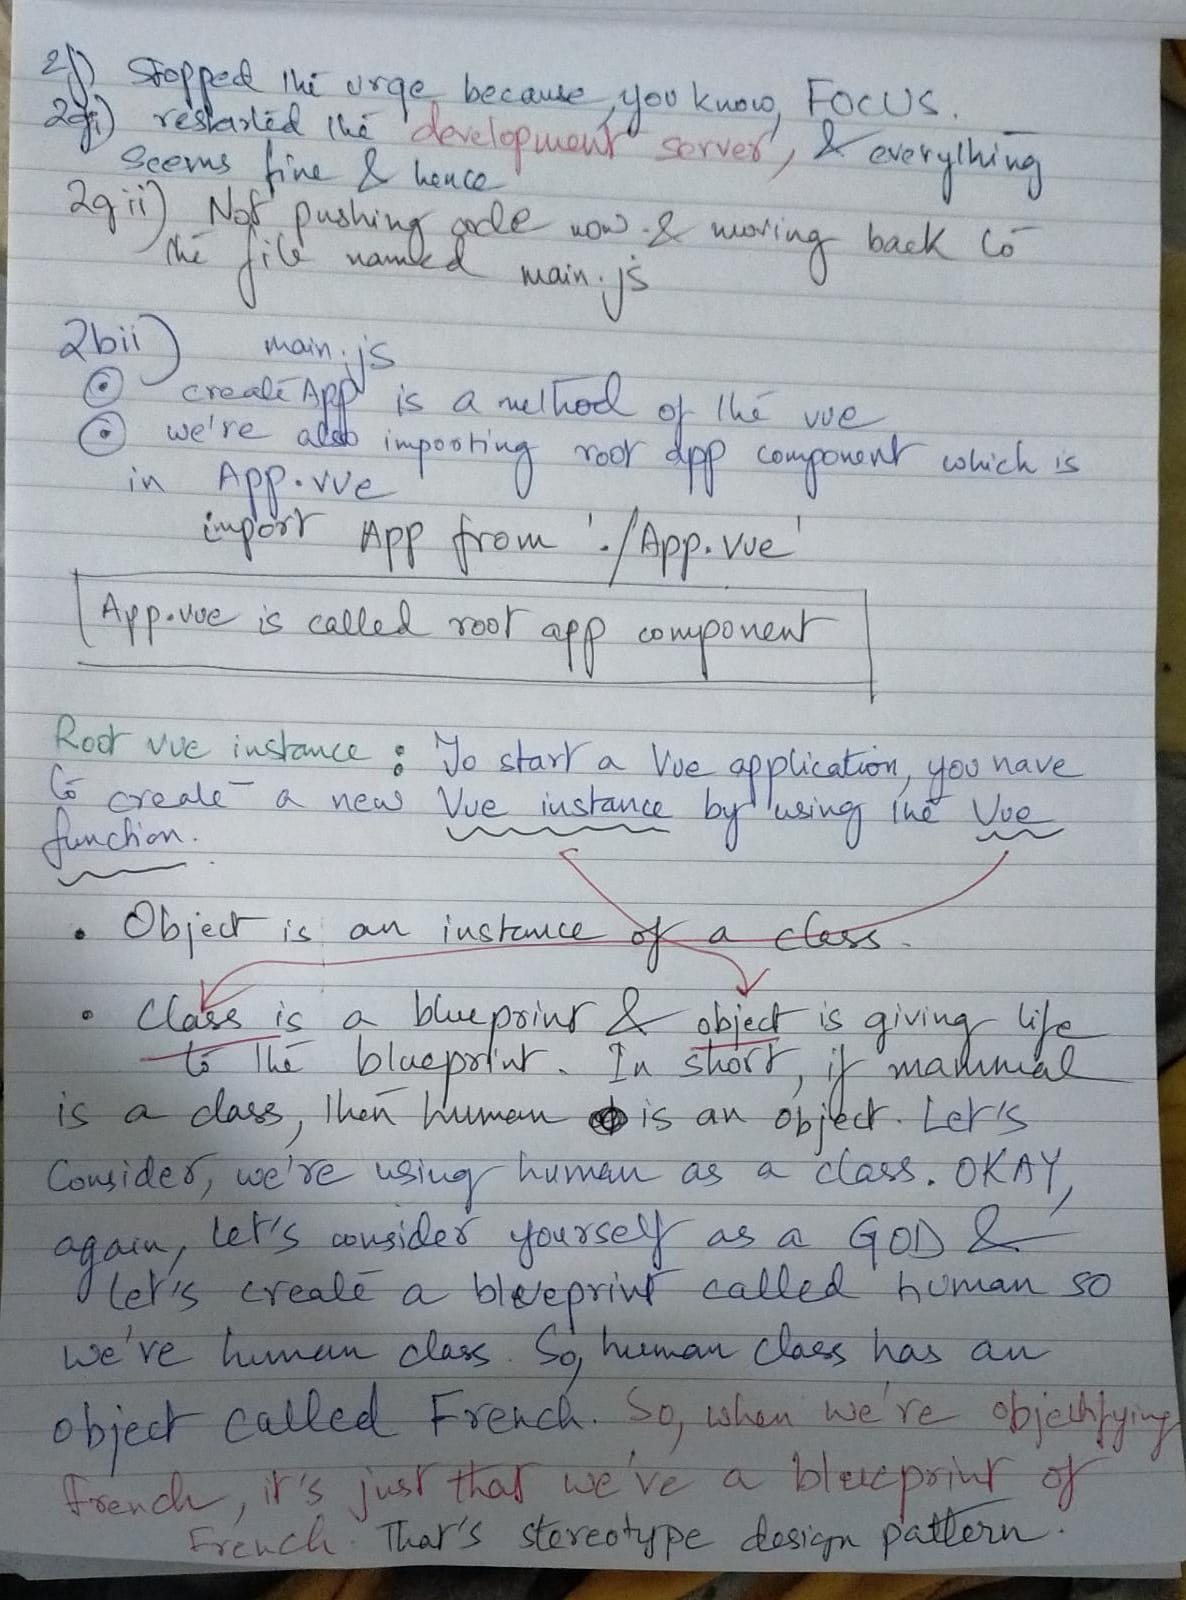 2f) Stopped the urge because, you know, FOCUS.
2gi) restarted the 'development server', & everything
seems fine & hence
2gii) Not pushing code now & moving back to
the file named main.js
2bii) main.js
⊙ createApp is a method of the vue
⊙ we're also importing root app component which is
in App.vue
import App from './App.vue'
App.vue is called root app component
Root vue instance : To start a Vue application, you have
to create a new Vue instance by using the Vue
function.
• Object is an instance of a class.
• Class is a blueprint & object is giving life
to the blueprint. In short, if mammal
is a class, then human is an object. Let's
Consider, we're using human as a class. OKAY,
again, let's consider yourself as a GOD &
let's create a blueprint called human so
we've human class. So, human class has an
object called French. So, when we're objectifying
French, it's just that we've a blueprint of
French. That's stereotype design pattern.